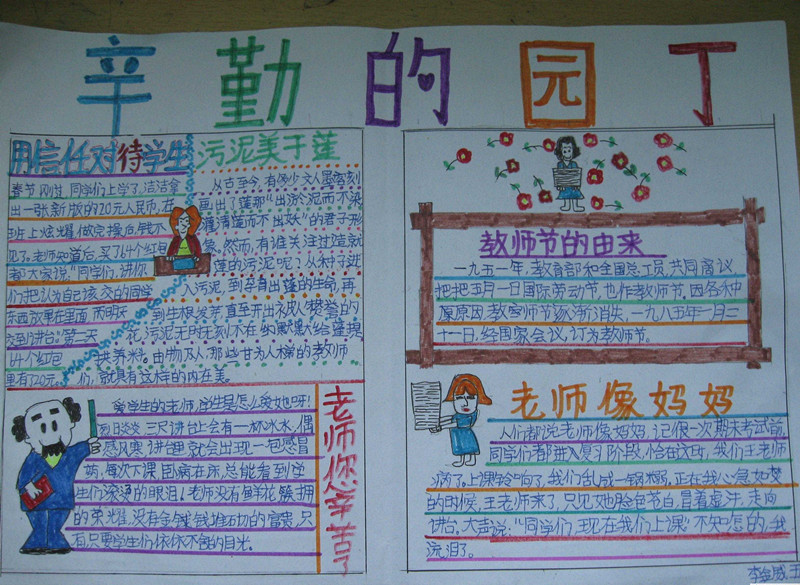 辛勤的园丁
用信任对待学生
春节刚过,同学们上学了,洁洁拿
出一张新版的20元人民币,在
班上炫耀,做完操后,钱不
见了。老师知道后,买了64个红包
对大家说:"同学们,请你
们把以为自己该交的同学
东西放里在里面,而明天
交到讲台。"第二天
64个红包
里有了20元。
污泥美于莲
从古至今,有多少文人墨客刻
画出了莲那"出淤泥而不染
濯清莲而不出妖"的君子形
象,然而,有谁关注过造就
莲的污泥呢?从种子进
入污泥,到孕育出莲的生命,再
到生根发芽,直至开出被人赞誉的
花,污泥无时无刻不在纵默默大给莲提
供养料。由物及人,那些甘为人梯的教师
们,就具有这样的内在美。
爱学生的老师,学生是怎么爱她呀!
烈日炎炎,三尺讲台上会有一杯冰水,偶
感风寒,讲台里就会出现一包感冒
药,每次下课,卧病在床,总能看到学
生们滚烫的眼泪!老师没有鲜花簇拥
的荣耀,没有金钱堆切的富贵,只
有,只要学生们依依不舍的目光。
老师您辛苦了
教师节的由来
一九五一年,教育部和全国总工员,共同商议
把把五月一日国际劳动节,也作教师节。因各种
原原因,教室师节逐渐消失,一九八五年一月二
十一日,经国家会议,订为教师节。
老师像妈妈
人们都说老师像妈妈,记很一次期末考试前
同学们都进入复习阶段,恰在这时,我们王老师
病了。上课铃响了,我们乱成一锅粥,正在我心急如焚
的时候,王老师来了,只见她脸色苍白,冒着虚汗,走向
讲台。大声说:"同学们,现在我们上课"不知怎的,我
流泪了。
李金威